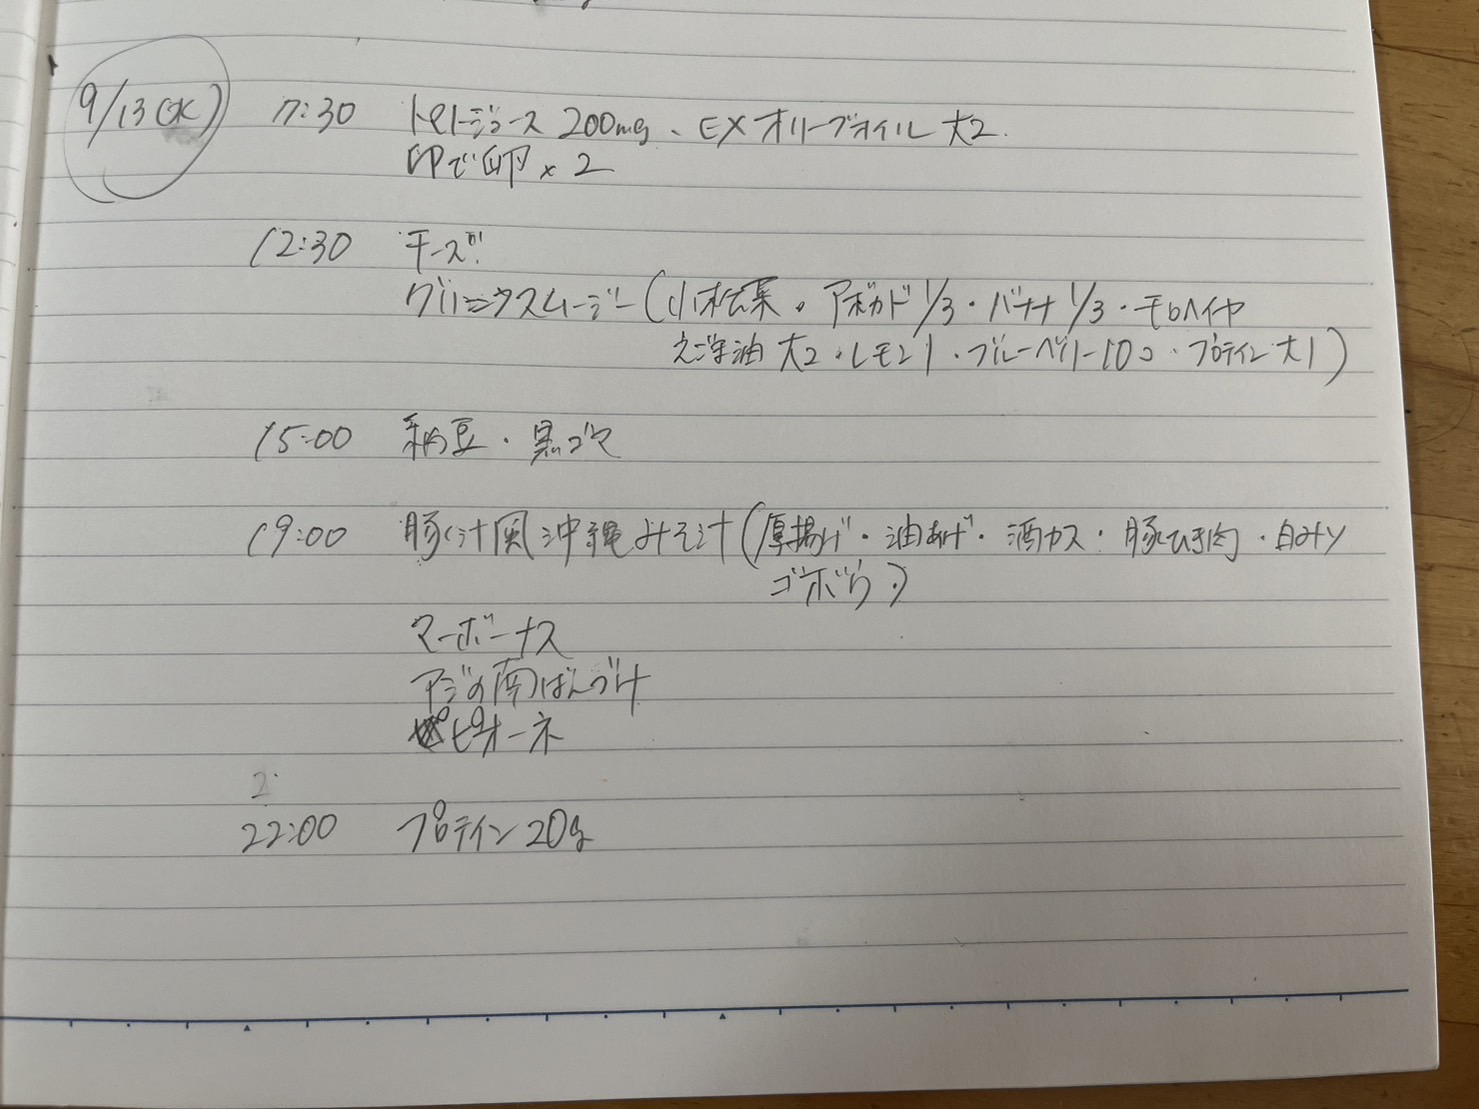 9/13(水) 7:30 トマトジュース 200mg、EXオリーブオイル 大2.
ゆで卵×2
12:30 チーズ
グリーンスムージー(小松菜・アボカド1/3・バナナ1/3・モロヘイヤ
えごま油 大2・レモン1・ブルーベリー10コ・プロテイン大1)
15:00 納豆・黒ゴマ
19:00 豚汁風沖縄みそ汁(厚揚げ・油あげ・酒カス・豚ひき肉・白みソ
ゴボウ・)
マーボーナス
アジの南ばんづけ
ピオーネ
2
22:00 プロテイン 20g